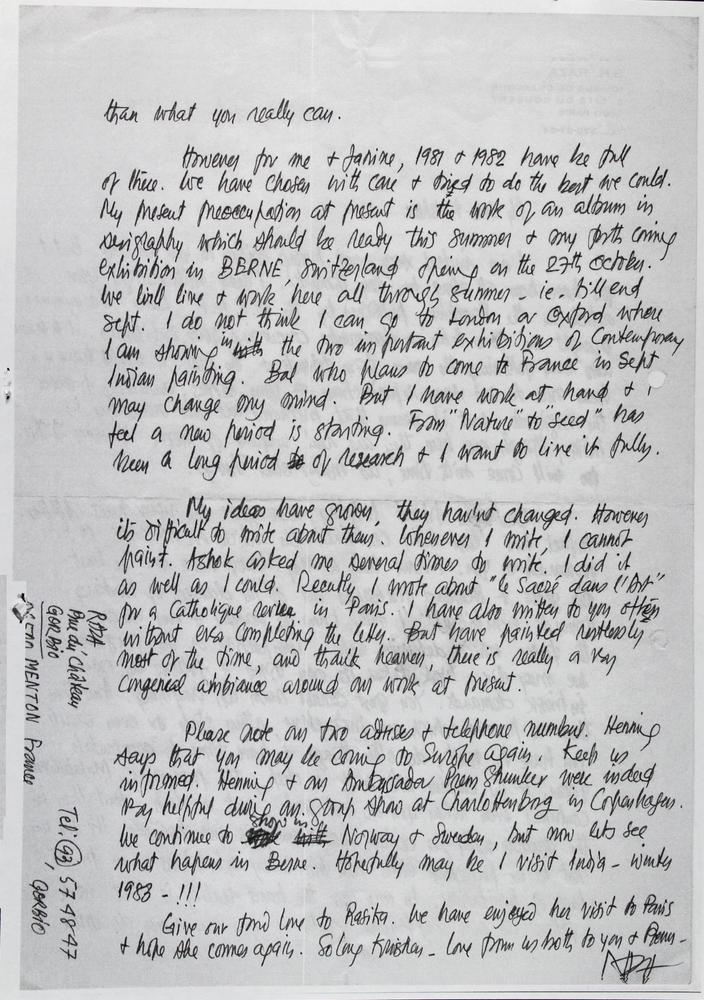 than what you really can.
However for me + Janine, 1981 + 1982 have be full
of these. We have chosen with care + tried to do the best we could.
My present preoccupation at present is the work of an album in
serigraphy which should be ready this summer + my forth coming
exhibition in BERNE, Switzerland opening on the 27th october.
We will live + work here all through summer - ie. till end
sept. I do not think I can go to London or Oxford where
I am showing in the two important exhibitions of Contemporary
Indian painting. Bal who plans to come to France in Sept
may change my mind. But I have work at hand + I
feel a new period is starting. From "Nature" to "Seed" has
been a long period of research + I want to live it fully.
My ideas have grown, they hav'nt changed. However
its difficult to write about them. Whenever I write, I cannot
paint. Ashok asked me several times to write, I did it
as well as I could. Recently I wrote about "le Sacré dans l'Art"
for a Catholique review in Paris. I have also written to you often
without ever completing the letter. But have painted restlessly
most of the time, and thank heaven, there is really a very
congenial ambiance around our work at present.
Please note our two adresses + telephone numbers. Henning
says that you may be coming to Europe again. Keep us
informed. Henning + our Ambassador were indeed
very helpful during our group show at Charlottenborg in Copenhagen.
We continue to show in Norway + Sweden, but now lets see
what hapens in Berne. Hopefully may be I visit India - winter
1983 - !!!
Give our fond love to Rasika. We have enjoyed her visit to Paris
+ hope she comes again. So long Krishen - love from us both to you +
RAZA
RAZA
Rue du Château
GORBIO
NEAR MENTON France
Tel: (93) 57 48 47
GORBIO